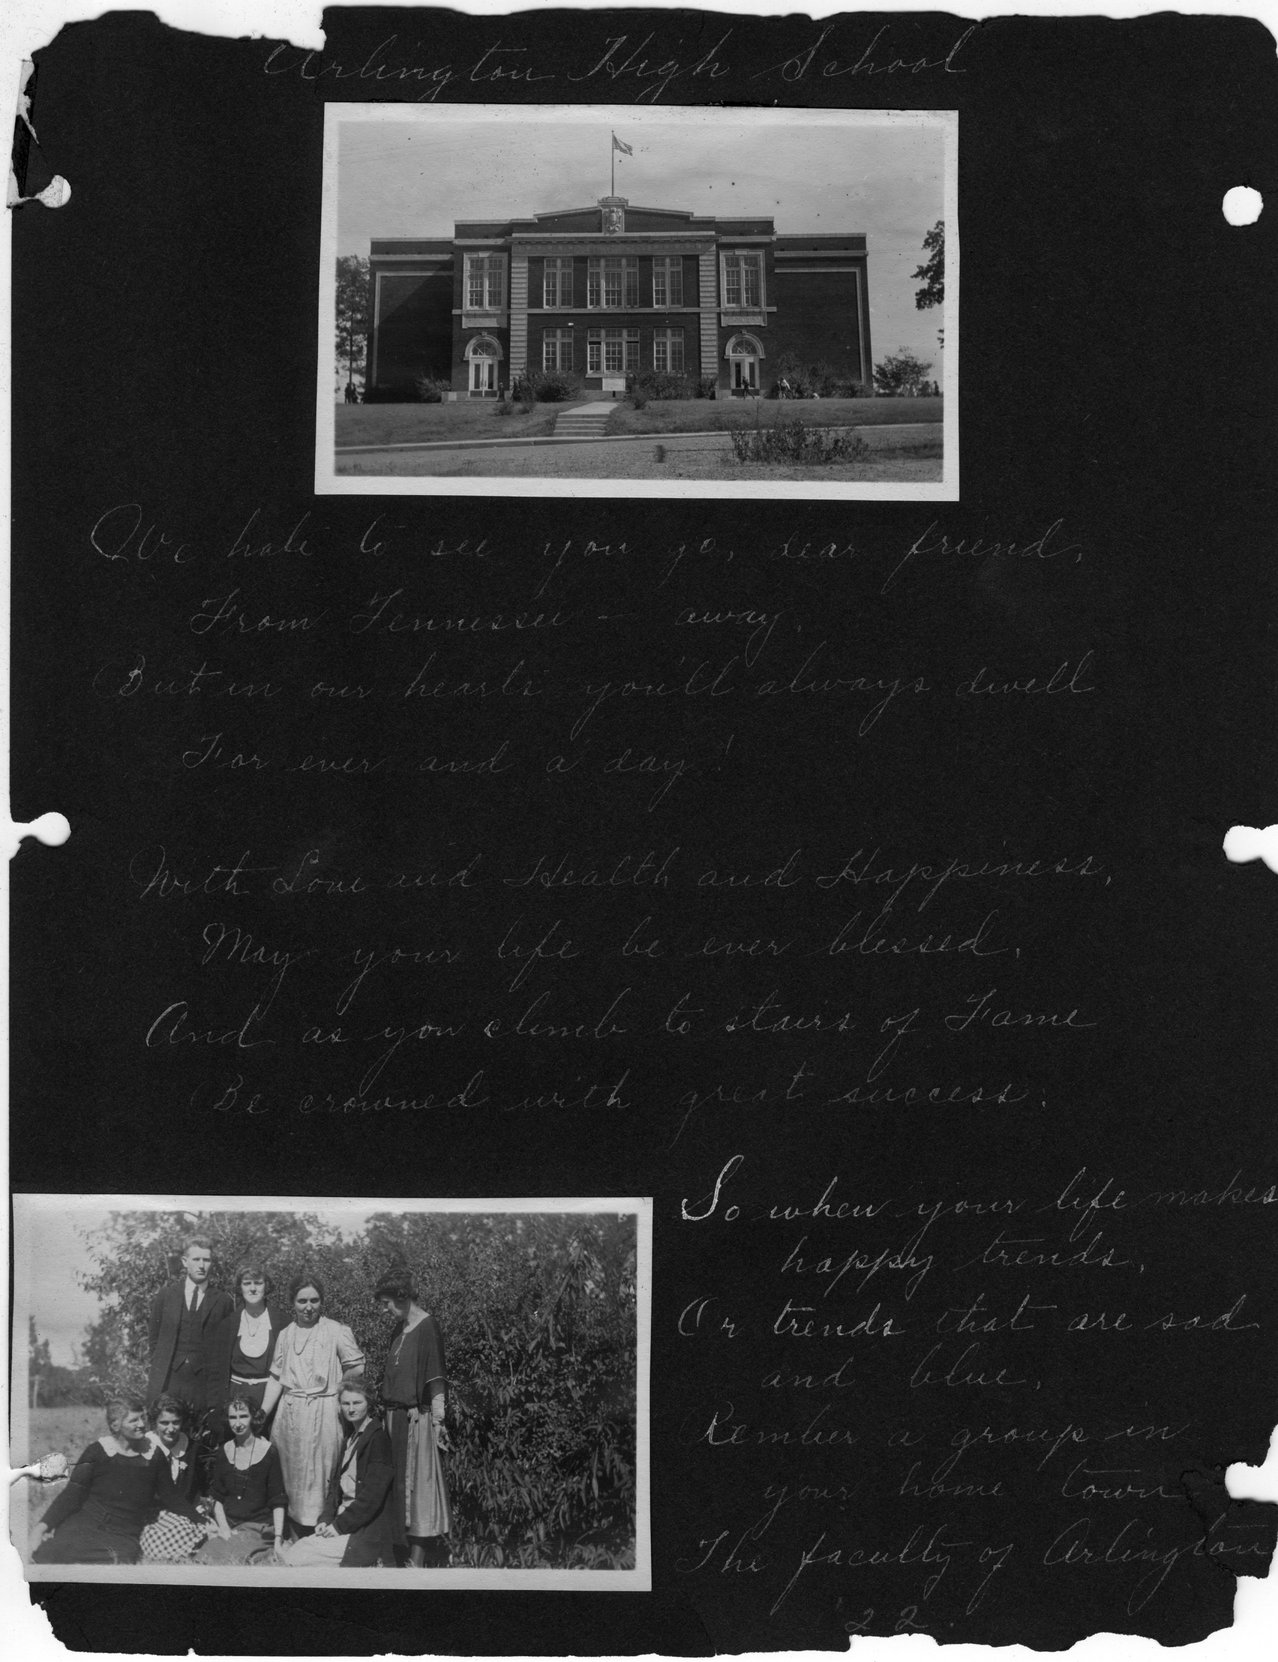 Arlington High School
We hate to see you go, dear friend,
From Tennessee - away,
But in our hearts you'll always dwell
For ever and a day!
With Love and Health and Happiness,
May your life be ever blessed,
And as you climb to stairs of Fame
Be crowned with great success.
So when your life makes
happy trends,
Or trends that are sad
and blue,
Rember a group in
your home town
The faculty of Arlington
'22.